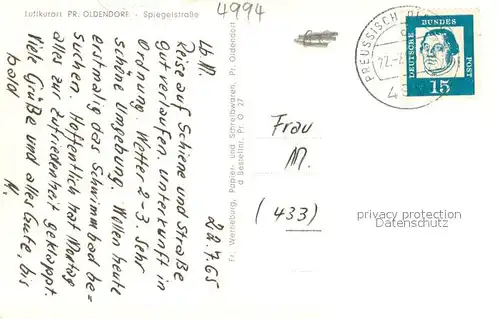 Luftkurort PR. OLDENDORF - Spiegelstraße
4994
22.7.65
Lb. M.
Reise auf Schiene und Straße
gut verlaufen. unterkunft in
Ordnung. Wetter 2-3. Sehr
schöne Umgebung. Wollen heute
erstmalig das Schwimmbad be-
suchen. Hoffentlich hat Montag
alles zur Zufriedenheit geklappt.
Viele Grüße und alles Gute, bis
bald
N.
Fr. Werneburg, Papier- und Schreibwaren, Pr. Oldendorf
d Bestellnr. Pr O 27
PREUSSISCH
DEUTSCHE
BUNDES
POST
15
Frau
M.
(433)
privacy protection
Datenschutz